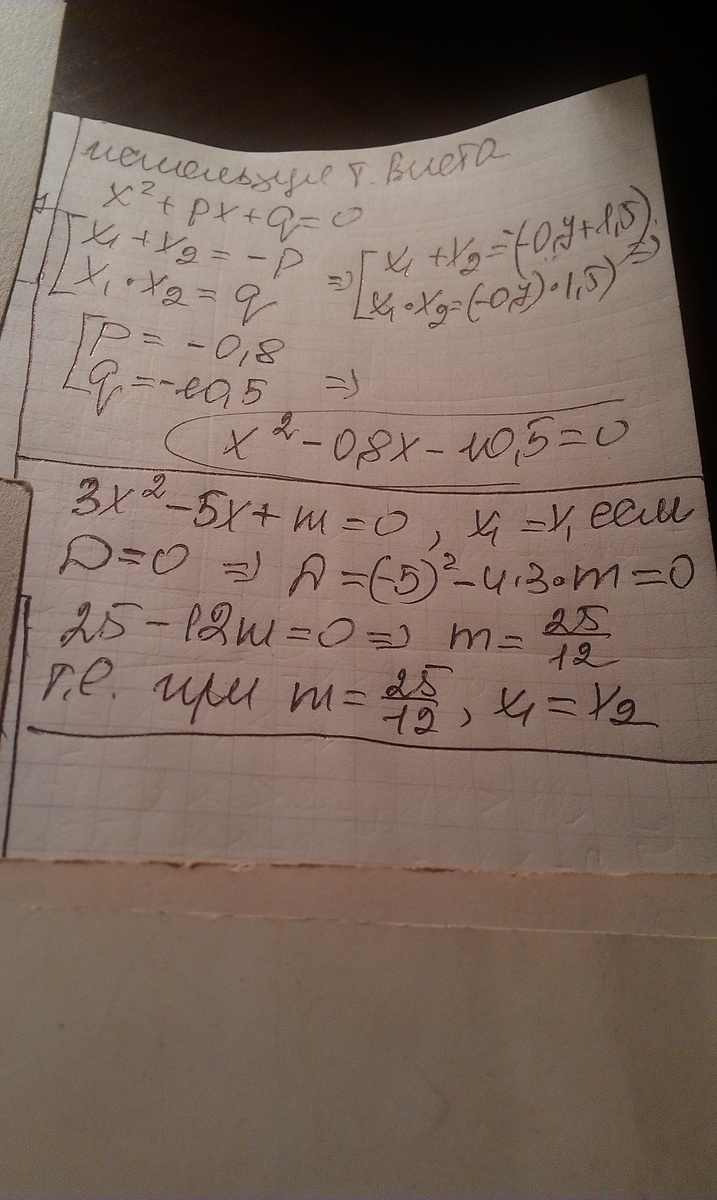 используя т. Виета
x² + px + q = 0
x₁ + x₂ = -p => [ x₁ + x₂ = -(-0,7 + 1,5) =>
x₁ · x₂ = q x₁ · x₂ = (-0,7) · 1,5)
p = -0,8
q = -10,5 =>
x² - 0,8x - 10,5 = 0
3x² - 5x + m = 0, x₁ = x, если
D = 0 => D = (-5)² - 4·3·m = 0
25 - 12m = 0 => m = 25/12
т.е. при m = 25/12, x₁ = x₂